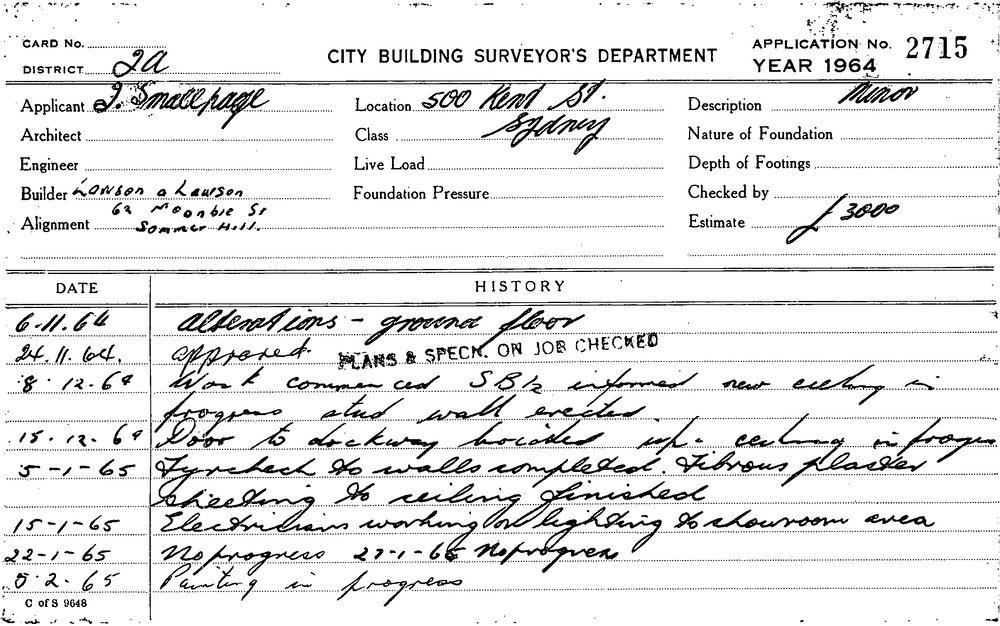 CARD No.
DISTRICT 2A
CITY BUILDING SURVEYOR'S DEPARTMENT
APPLICATION No. 2715
YEAR 1964
Applicant J. Smallpage
Location 500 Kent St.
Description Minor
Architect
Class Sydney
Nature of Foundation
Engineer
Live Load
Depth of Footings
Builder Lawson & Lawson
Foundation Pressure
Checked by
62 Moonbie St
Alignment Sommer Hill.
Estimate £ 3000
DATE HISTORY
6.11.64 Alterations - ground floor
24.11.64. approved. PLANS & SPECN. ON JOB CHECKED
8.12.64 Work commenced informed new ceiling in
progress stud wall erected.
15.12.64 Door to dockway bricked up. ceiling in progress
5-1-65 Gyrcheck to walls completed. Fibrous plaster
sheeting to ceiling finished
15-1-65 Electricians working on lighting to showroom area
22-1-65 No progress 27-1-65 No progress
5.2.65 Painting in progress
C of S 9648